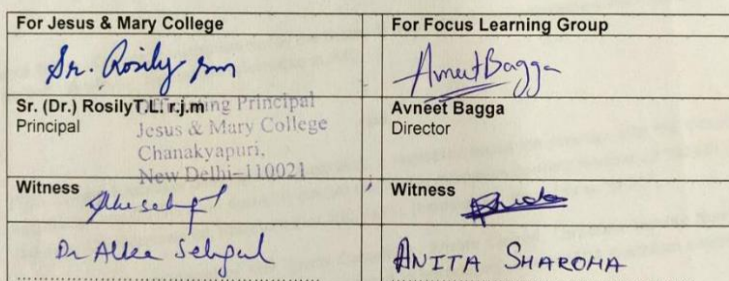 For Jesus & Mary College
For Focus Learning Group
Sr. Rosily rjm
Avneet Bagga
Sr. (Dr.) RosilyT.L. r.j.m
Principal
Officiating Principal
Jesus & Mary College
Chanakyapuri,
New Delhi-110021
Avneet Bagga
Director
Witness
Witness
Dr Alka Sehgal
ANITA SHAROHA